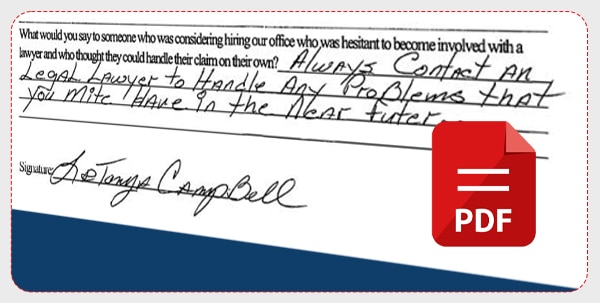 What would you say to someone who was considering hiring our office who was hesitant to become involved with a
lawyer and who thought they could handle their claim on their own? Always Contact An
Legal Lawyer to Handle Any Problems that
you Mite Have in the Near futer
Signature: LaTanya Campbell
PDF